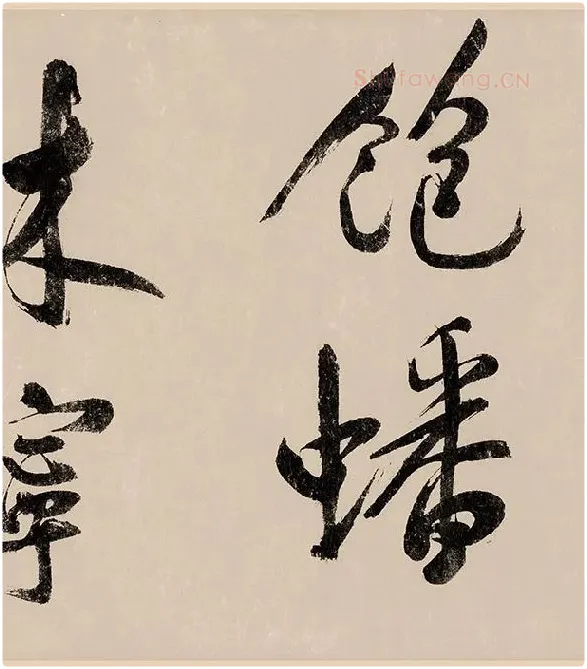 飽蟠
寧
Shufawang.CN